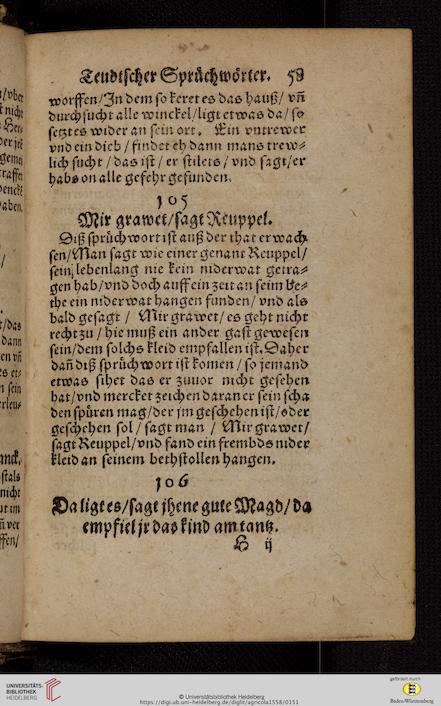 Teudtscher Sprüchwörter. 58
worffen/ In dem so keret es das hauß/ vñ
durchsucht alle winckel/ ligt etwas da/ so
setzt es wider an sein ort. Ein vntrewer
vnd ein dieb/ findet eh dann mans trew-
lich sucht/ das ist/ er stilets/ vnd sagt/ er
habs on alle gefehr gefunden.
105
Mir grawet/ sagt Reuppel.
Diß sprüchwort ist auß der that erwach
sen/ Man sagt wie einer genant Reuppel/
sein lebenlang nie kein niderwat getra-
gen hab/ vnd doch auff ein zeit an seim be-
the ein niderwat hangen funden/ vnd als
bald gesagt/ Mir grawet/ es geht nicht
recht zu/ hie muß ein ander gast gewesen
sein/ dem solchs kleid empfallen ist. Daher
dañ diß sprüchwort ist komen/ so jemand
etwas sihet das er zuuor nicht gesehen
hat/ vnd mercket zeichen daran er sein scha
den spüren mag/ der jm geschehen ist/ oder
geschehen sol/ sagt man/ Mir grawet/
sagt Reuppel/ vnd fand ein frembds nider
kleid an seinem bethstollen hangen.
106
Da ligt es/ sagt jhene gute Magd/ da
empfiel jr das kind am tantz.
H ij
UNIVERSITÄTS-
BIBLIOTHEK
HEIDELBERG
© Universitätsbibliothek Heidelberg
https://digi.ub.uni-heidelberg.de/diglit/agricola1558/0151
gefördert durch
Baden-Württemberg